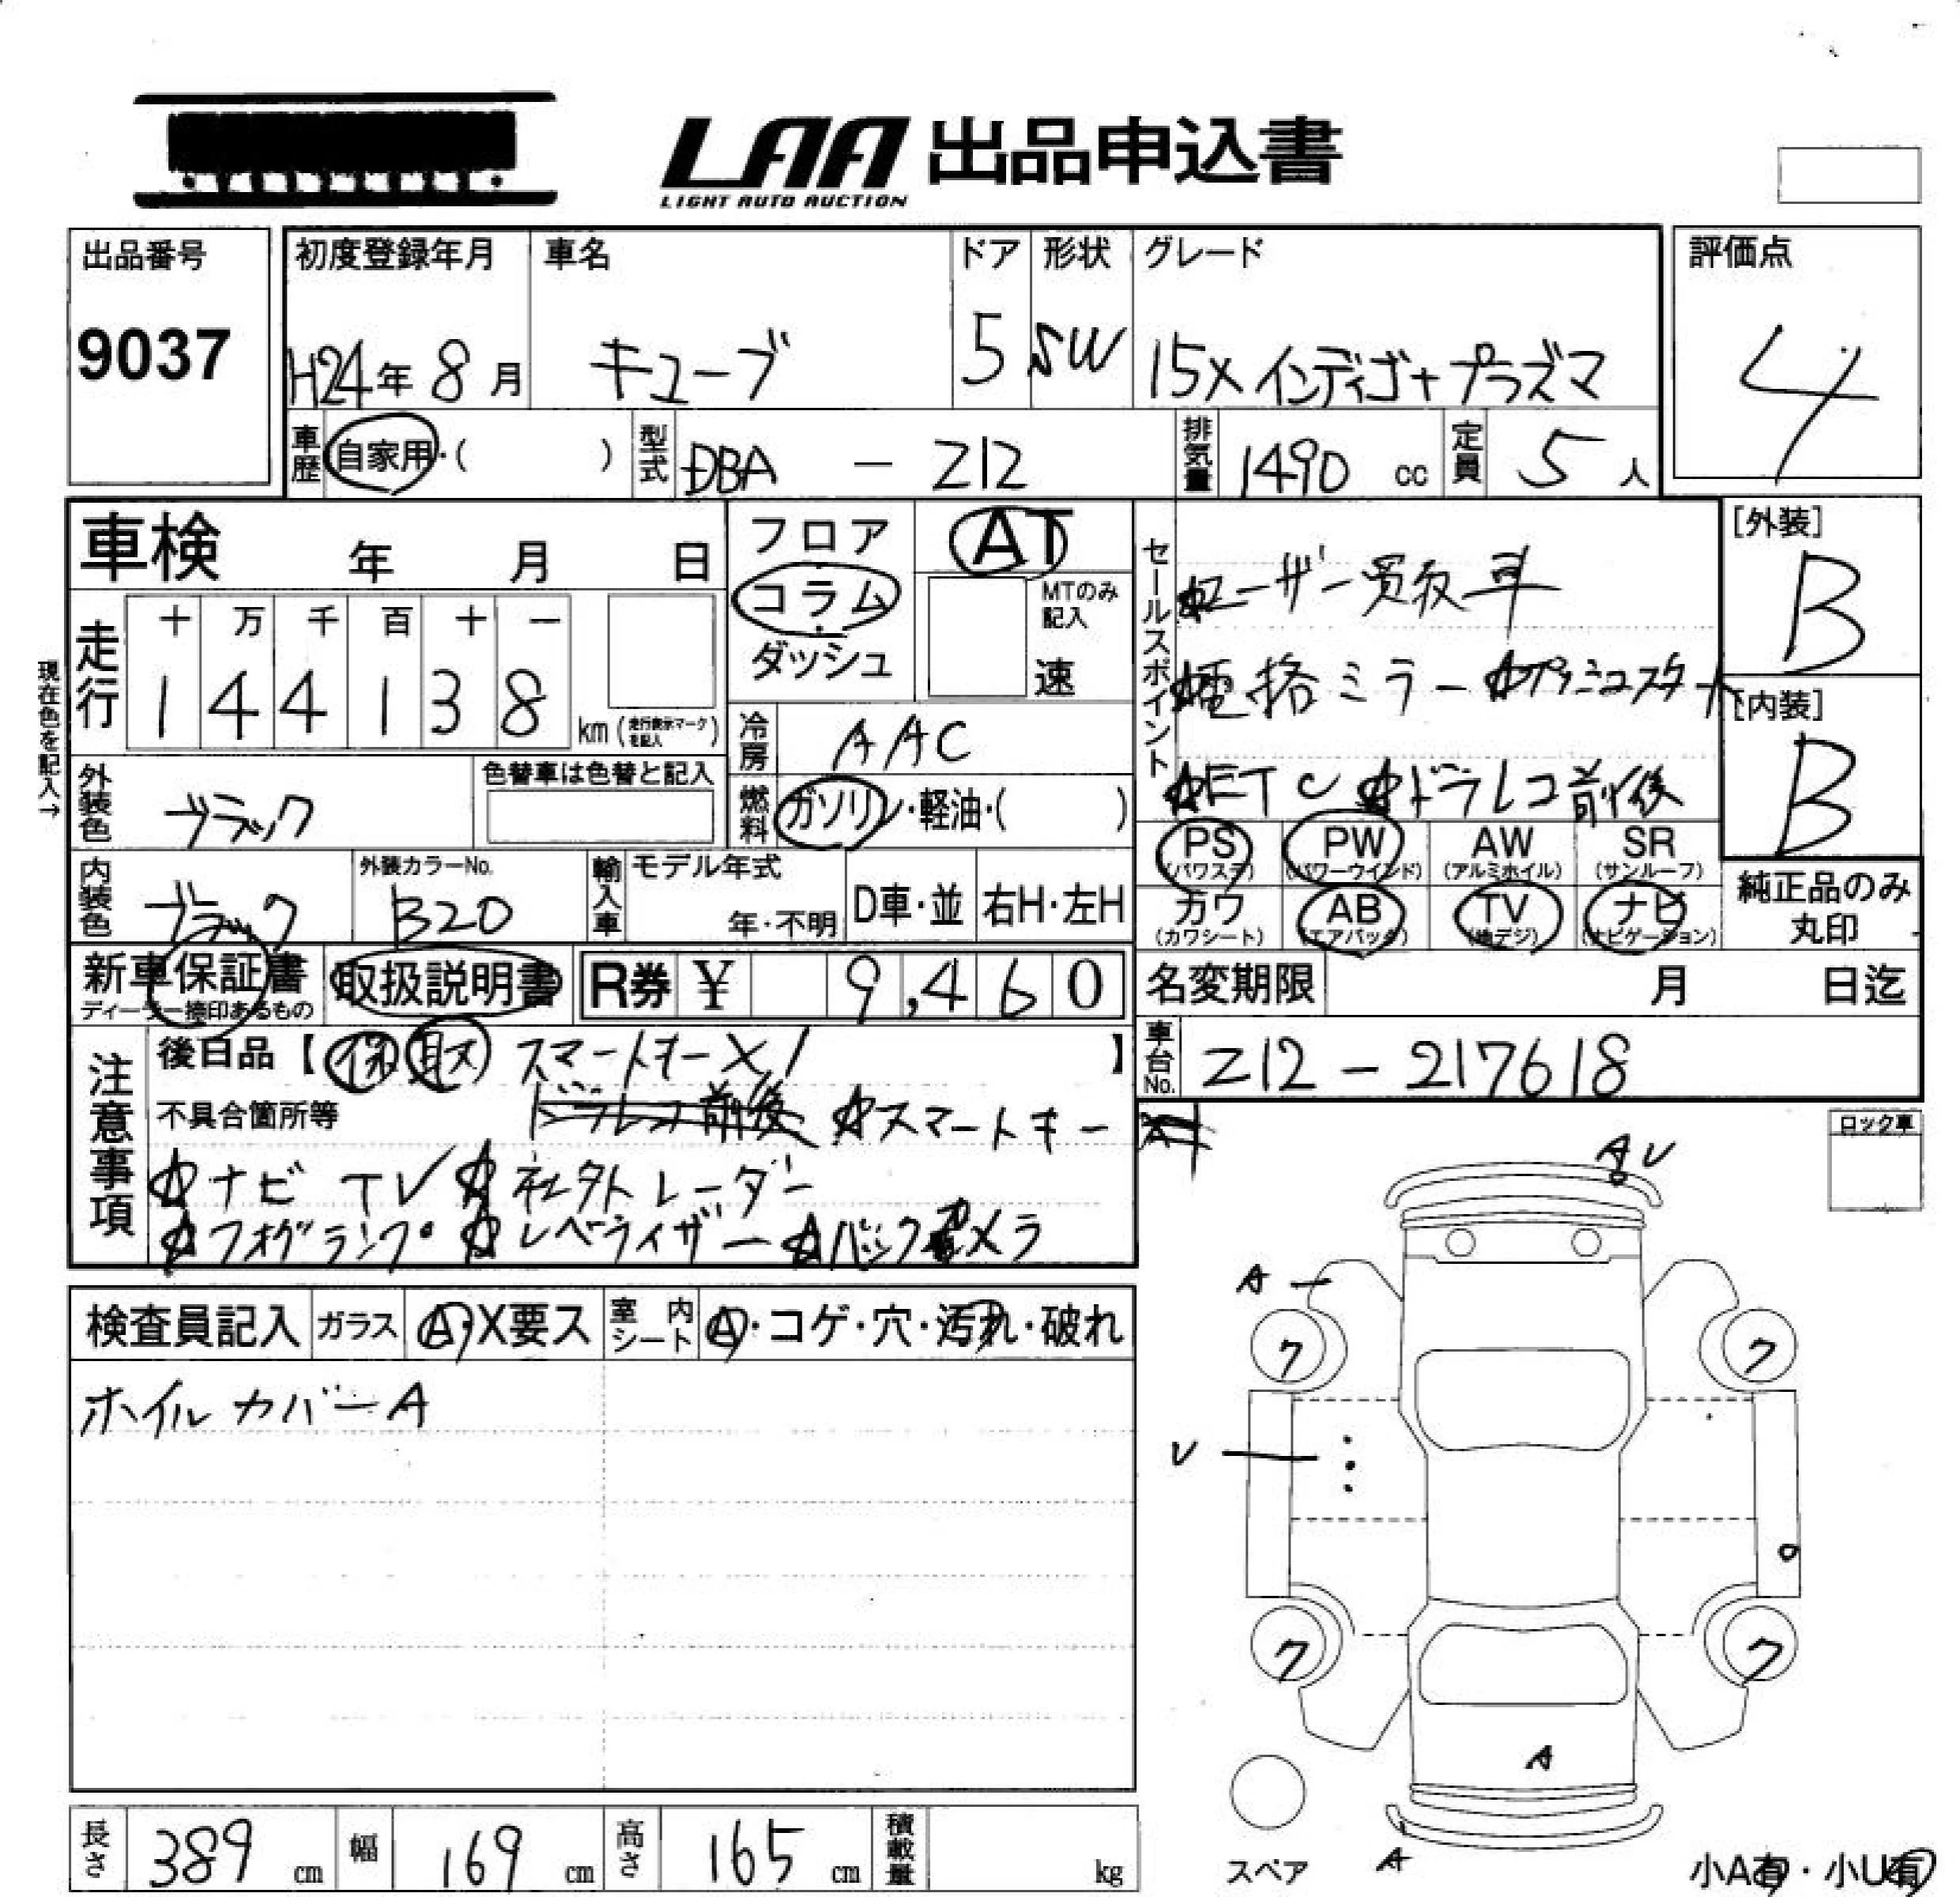 LAA 出品申込書
LIGHT AUTO AUCTION
出品番号
9037
初度登録年月 車名 ドア 形状 グレード 評価点
H24年 8月 キューブ 5 SW 15X インディゴ+プラズマ 4
車歴 自家用・( ) 型式 DBA - Z12 排気量 1490 cc 定員 5 人
車検 年 月 日
フロア AT
コラム
ダッシュ
MTのみ記入
速
セールスポイント
ユーザー買取車
☆電格ミラー ☆プッシュスタート
☆ETC ☆ドラレコ前後
[外装]
B
[内装]
B
現在色を記入→
走行 十 万 千 百 十 一
1 4 4 1 3 8 km (走行表示マークを記入)
冷房 AAC
外装色 ブラック 色替車は色替と記入
燃料 ガソリン・軽油・( )
PS PW AW SR
(パワステ) (パワーウインド) (アルミホイル) (サンルーフ)
カワ AB TV ナビ
(カワシート) (エアバッグ) (地デジ) (ナビゲーション)
純正品のみ
丸印
内装色 ブラック 外装カラーNo. B20 輸入車 モデル年式 年・不明 D車・並 右H・左H
新車保証書 取扱説明書 R券 ¥ 9,460
ディーラー捺印あるもの
名変期限 月 日迄
注意事項
後日品【 保 取 スマートキー×1 】
車台No. Z12 - 217618
不具合箇所等 ドラレコ前後 ☆スマートキー
☆ナビ TV ☆社外レーダー
☆フォグランプ ☆レベライザー ☆バックカメラ
ロック車
A U
A
ク ク
U
ク ク
A
A
スペア
小A有・小U有
検査員記入 ガラス A・X要ス 室内シート A・コゲ・穴・汚れ・破れ
ホイルカバーA
長さ 389 cm 幅 169 cm 高さ 165 cm 積載量 kg